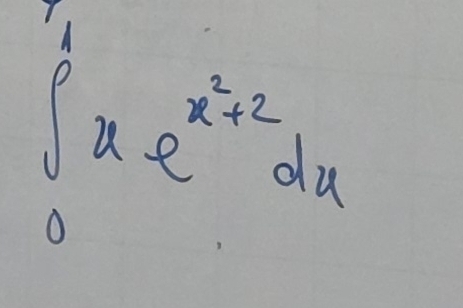 ∫₀¹ x e^(x²+2) dx